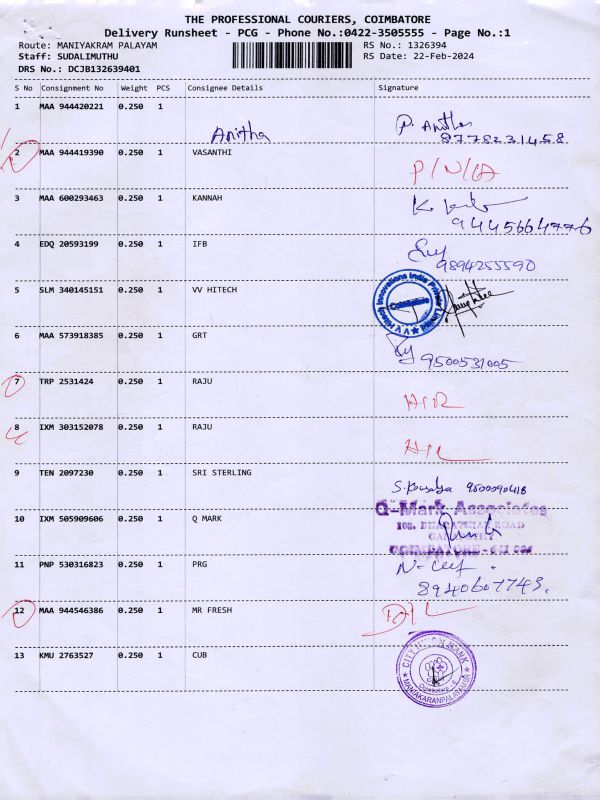 THE PROFESSIONAL COURIERS, COIMBATORE
Delivery Runsheet - PCG - Phone No.:0422-3505555 - Page No.:1
Route: MANIYAKRAM PALAYAM RS No.: 1326394
Staff: SUDALIMUTHU RS Date: 22-Feb-2024
DRS No.: DCJB132639401
S No Consignment No Weight PCS Consignee Details Signature
1 MAA 944420221 0.250 1
Anitha P. Anitha
8778231458
2 MAA 944419390 0.250 1 VASANTHI
P/N/A
3 MAA 600293463 0.250 1 KANNAH
9445664776
4 EDQ 20593199 0.250 1 IFB
9894255590
5 SLM 340145151 0.250 1 VV HITECH
V V Hitech Innovations India Private Limited
Coimbatore
6 MAA 573918385 0.250 1 GRT
9500531005
7 TRP 2531424 0.250 1 RAJU
8 IXM 303152078 0.250 1 RAJU
9 TEN 2097230 0.250 1 SRI STERLING
9500090418
10 IXM 505909606 0.250 1 Q MARK
Q-Mark Associates
ROAD
COIMBATORE
11 PNP 530316823 0.250 1 PRG
8940607743.
12 MAA 944546386 0.250 1 MR FRESH
D/L
13 KMU 2763527 0.250 1 CUB
CITY UNION BANK
MANIAKARANPALAYAM